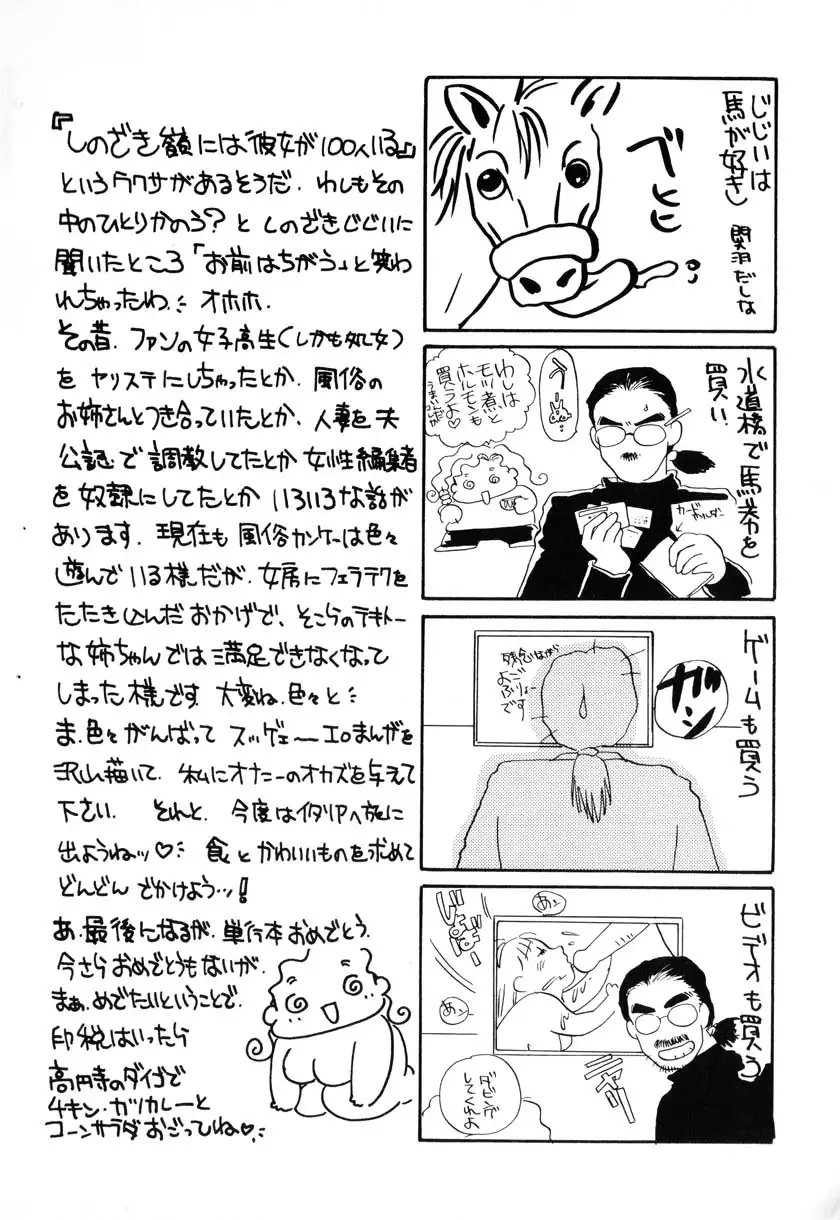 じじいは
馬が好き
関羽だしな
べヒヒ
水道橋で馬券を
買い
カードホルダー
わしは
モツ煮と
ホルモンも
買うよ♡
うまいのだが
ゲームも買う
ガン
残念ながら
よご
ふりょー
です
ビデオも買う
あっ
あっ
ダビング
してくれよ
『しのざき嶺には彼女が100人いる』
というウワサがあるそうだ．わしもその
中のひとりかのう？と しのざきじじいに
聞いたところ「お前はちがう」と笑わ
れちゃったわ オホホ．
その昔．ファンの女子高生（しかも処女）
を ヤリステにしちゃったとか．風俗の
お姉さんとつき合っていたとか．人妻を夫
公認で調教してたとか 女性編集者
を奴隷にしてたとか いろいろな話が
あります．現在も風俗カンケーは色々
遊んでいる様だが，女房にフェラテクを
たたき込んだおかげで，そこらのテキトー
な姉ちゃんでは満足できなくなって
しまった様です 大変ね，色々と
ま，色々がんばって スッゲェーエロまんがを
沢山描いて，私にオナニーのオカズを与えて
下さい． それと，今度はイタリアへ旅に
出ようねッ♡ 食とかわいいものを求めて
どんどん でかけよう…！
あ，最後になるが，単行本おめでとう．
今さらおめでとうもないが，
まぁ，めでたいということで，
印税はいったら
高円寺のダイゴで
チキン・カツカレーと
コーンサラダおごってね♡